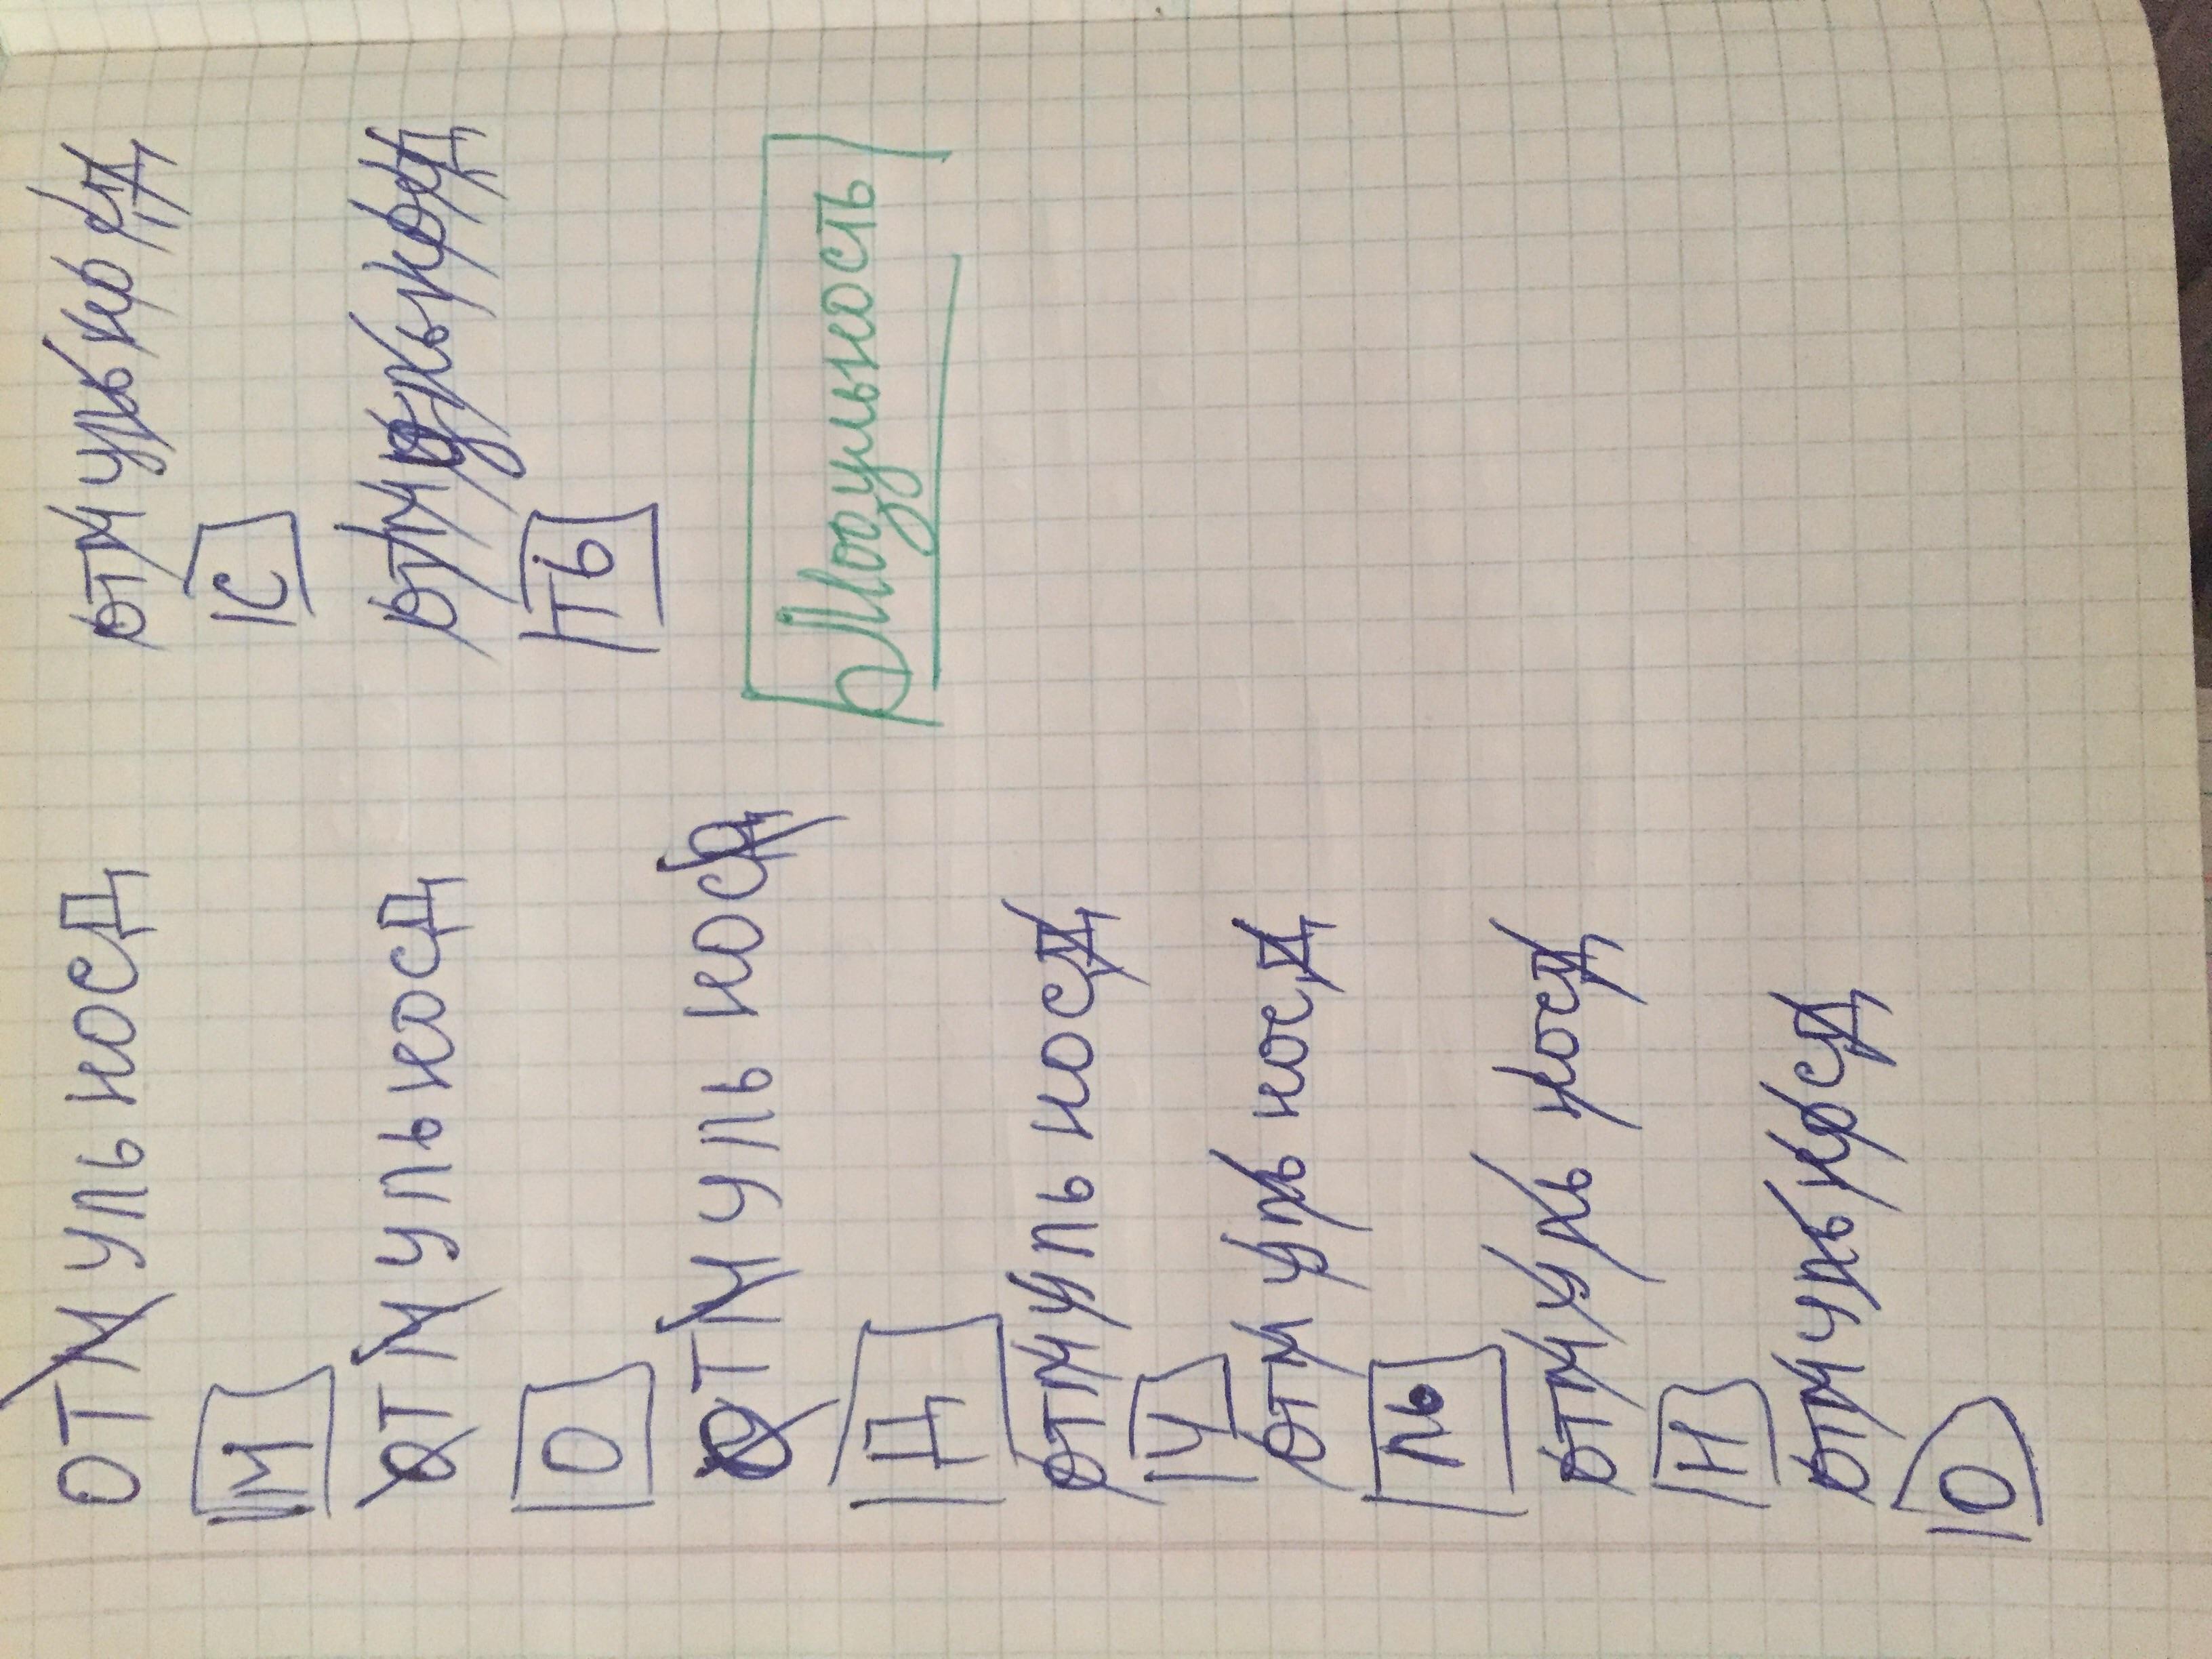 ОТМ УЛЬ НОСД
М
ОТМ УЛЬ НОСД
О
ОТМ УЛЬ НОСД
Д
ОТМ УЛЬ НОСД
У
ОТМ УЛЬ НОСД
ЛЬ
ОТМ УЛЬ НОСД
Н
ОТМ УЛЬ НОСД
О
ОТМ УЛЬ НОСД
С
ОТМ УЛЬ НОСД
ТЬ
Модульность